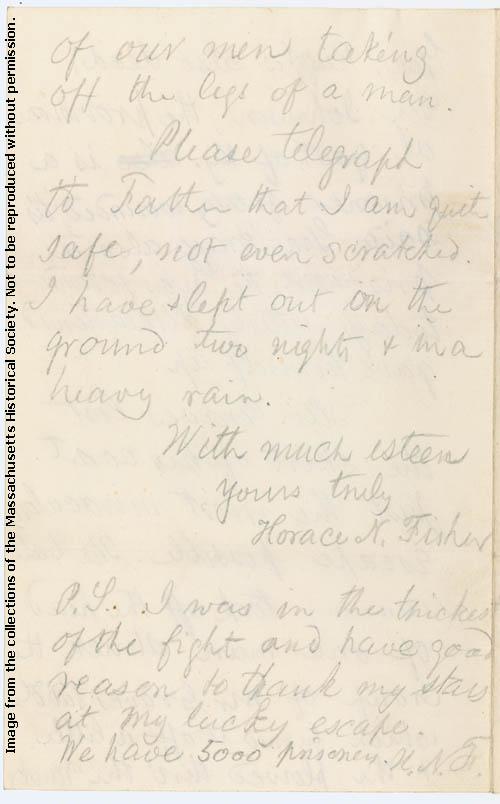 of our men taking
off the legs of a man.
Please telegraph
to Father that I am quite
safe, not even scratched.
I have slept out on the
ground two nights & in a
heavy rain.
With much esteem
Yours truly
Horace N. Fisher
P.S. I was in the thickest
of the fight and have good
reason to thank my stars
at my lucky escape.
We have 5000 prisoners. H.N.F.
Image from the collections of the Massachusetts Historical Society. Not to be reproduced without permission.